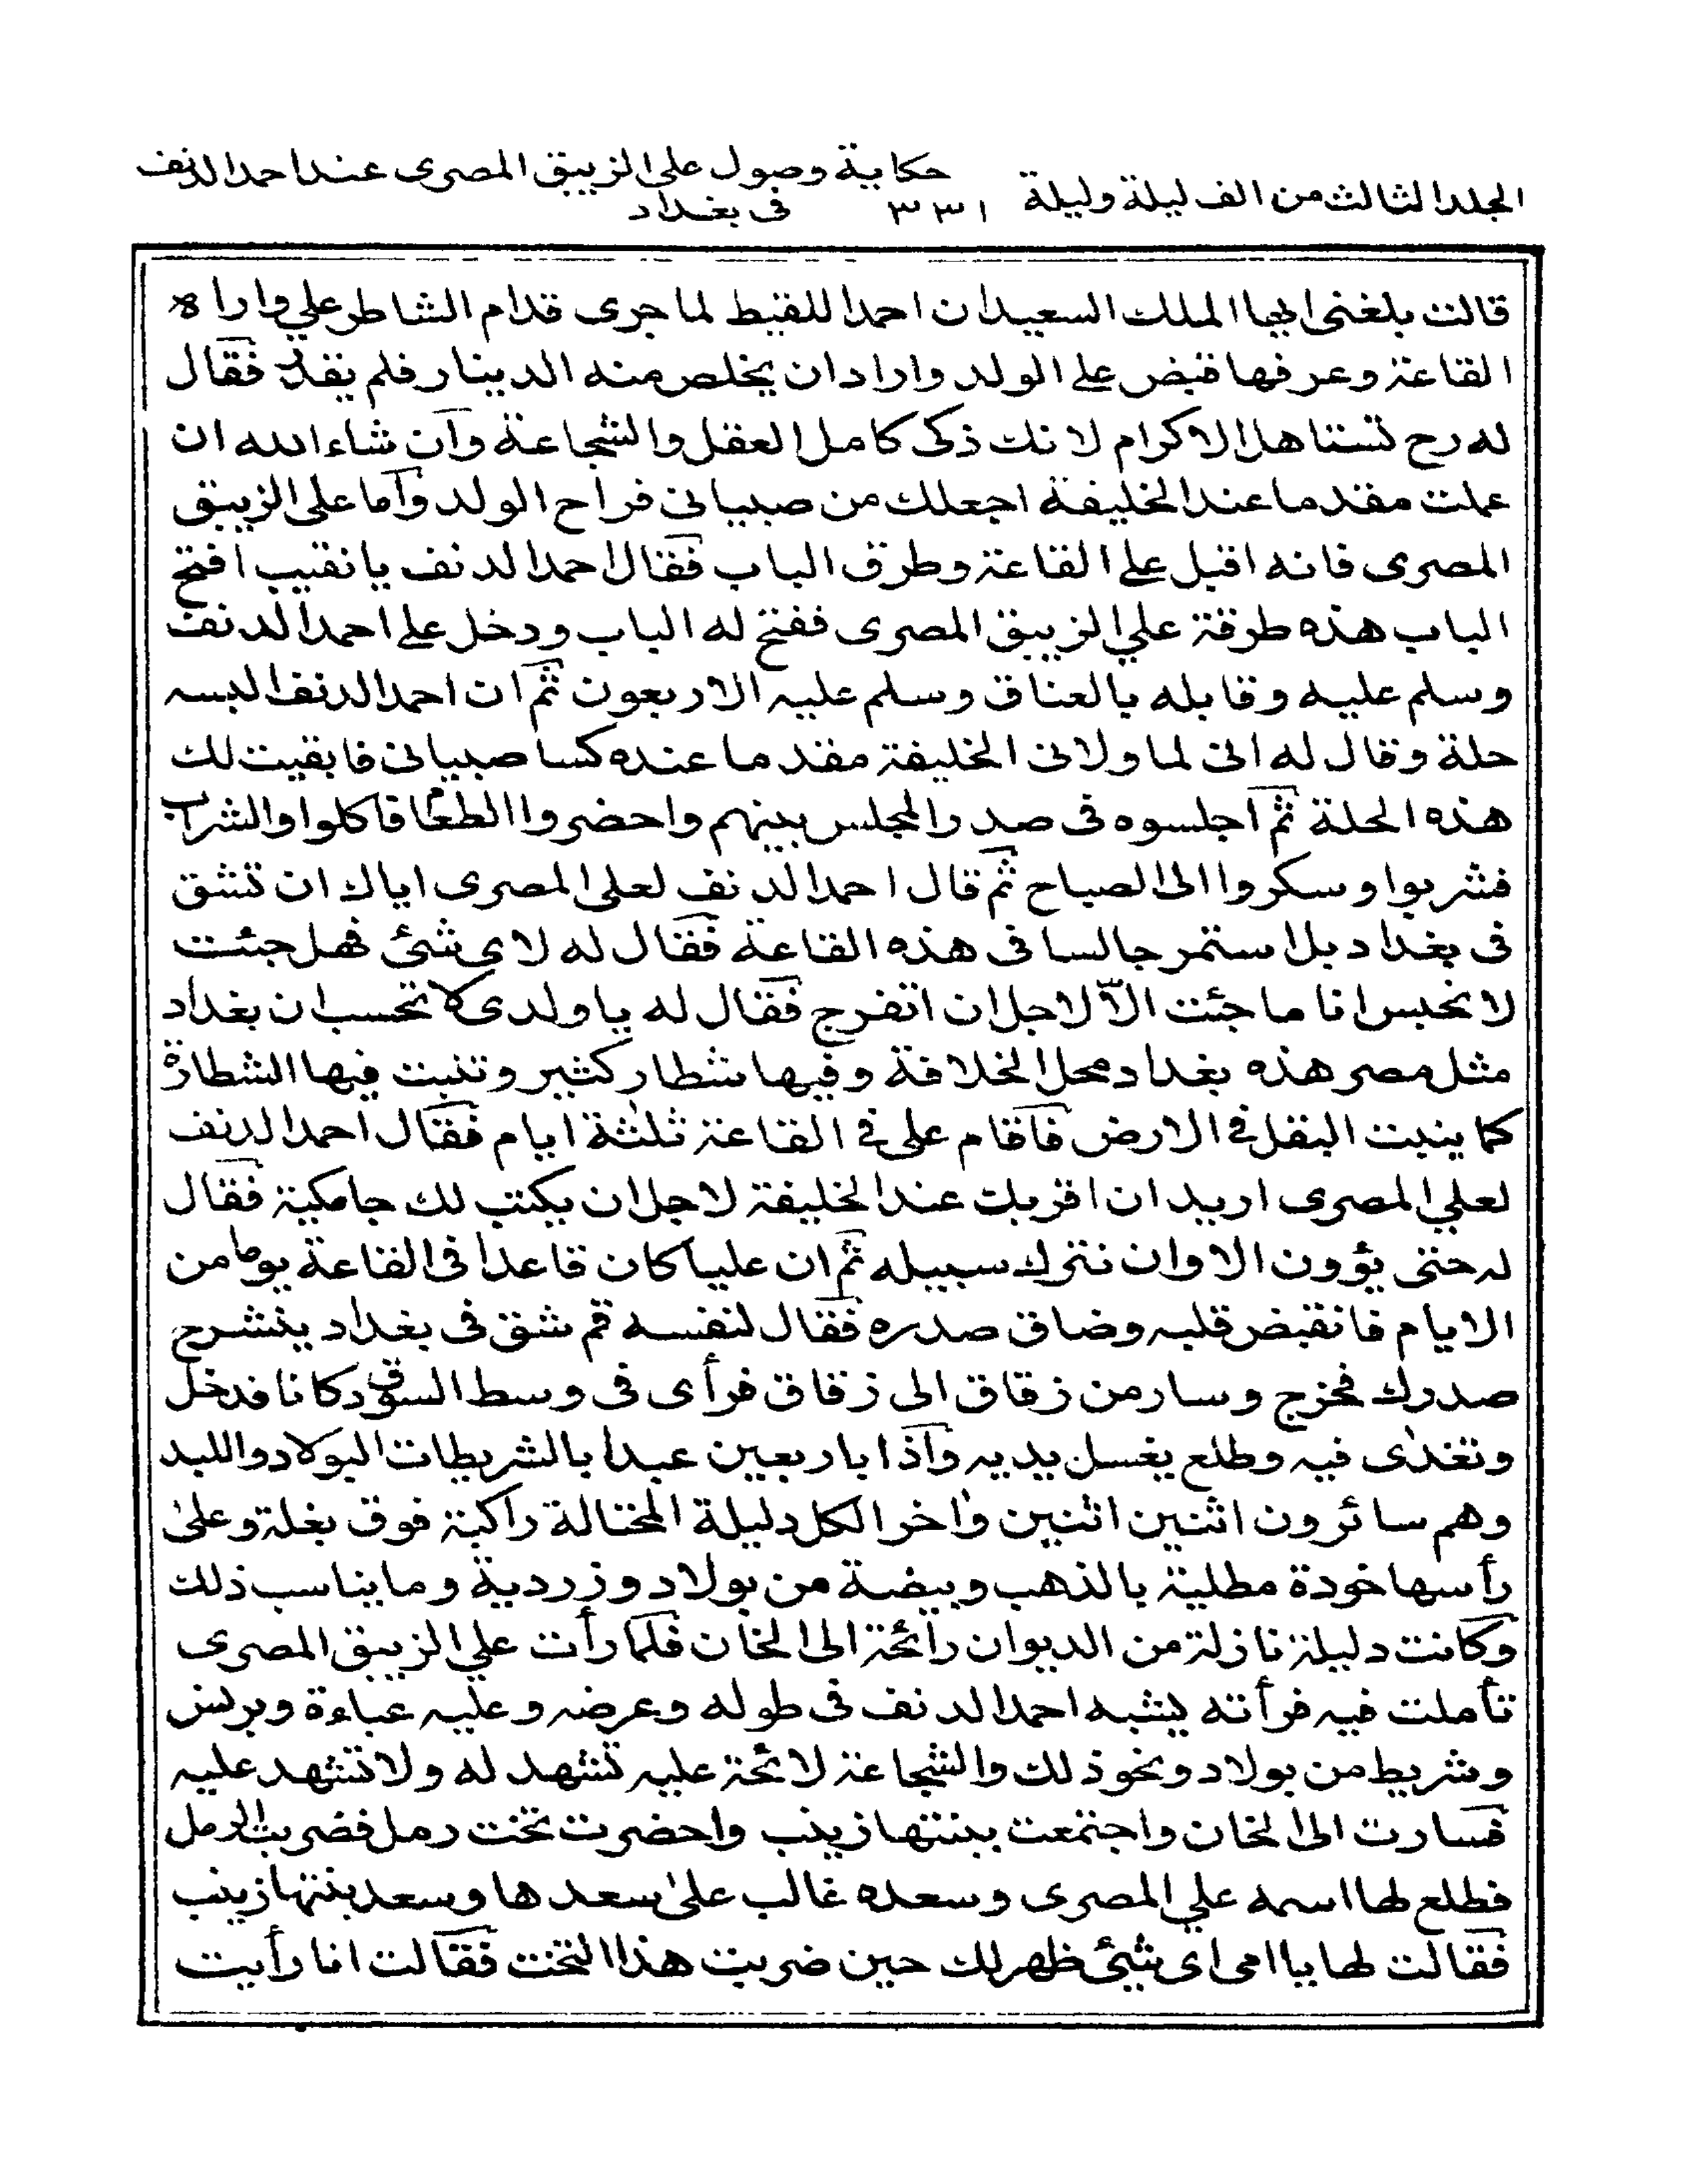 الجلد الثالث من الف ليلة وليلة ٣٣١ حكاية وصول على الزيبق المصرى عند احمد الدنف
فى بغداد
قالت بلغنى ايها الملك السعيد ان احمد اللقيط لما جرى قدام الشاطر علي واراه
القاعة وعرفها قبض على الولد واراد ان يخلص منه الدينار فلم يقدر فقال
له رح تستاهل الاكرام لانك ذكى كامل العقل والشجاعة وان شاء الله ان
عملت مقدما عند الخليفة اجعلك من صبيانى فراح الولد وآما على الزيبق
المصرى فانه اقبل على القاعة وطرق الباب فقال احمد الدنف يا نقيب افتح
الباب هذه طرقة علي الزيبق المصرى ففتح له الباب ودخل على احمد الدنف
وسلم عليه وقابله بالعناق وسلم عليه الاربعون ثم ان احمد الدنف البسه
حلة وقال له انى لما ولانى الخليفة مقدما عنده كسا صبيانى فابقيت لك
هذه الحلة ثم اجلسوه فى صدر المجلس بينهم واحضروا الطعام فاكلوا والشراب
فشربوا وسكروا الى الصباح ثم قال احمد الدنف لعلى المصرى اياك ان تشق
فى بغداد بل استمر جالسا فى هذه القاعة فقال له لاى شئ فهل جئت
لانحبس انا ما جئت الّا لاجل ان اتفرج فقال له يا ولدى لا تحسب ان بغداد
مثل مصر هذه بغداد محل الخلافة وفيها شطار كثير وتنبت فيها الشطارة
كما ينبت البقل فى الارض فاقام على فى القاعة ثلثة ايام فقال احمد الدنف
لعلي المصرى اريد ان اقربك عند الخليفة لاجل ان يكتب لك جامكية فقال
له حتى يؤون الاوان نترك سبيله ثم ان عليا كان قاعدا فى القاعة يوما من
الايام فانقبض قلبه وضاق صدره فقال لنفسه قم شق فى بغداد ينشرح
صدرك فخرج وسار من زقاق الى زقاق فرأى فى وسط السوق دكانا فدخل
وتغدى فيه وطلع يغسل يديه وآذا باربعين عبدا بالشريطات البولاد واللبد
وهم سائرون اثنين اثنين وآخر الكل دليلة المحتالة راكبة فوق بغلة وعلى
رأسها خودة مطلية بالذهب وبيضة من بولاد وزردية وما يناسب ذلك
وكانت دليلة نازلة من الديوان رائحة الى الخان فلما رأت علي الزيبق المصرى
تأملت فيه فرأته يشبه احمد الدنف فى طوله وعرضه وعليه عباءة وبرنس
وشريط من بولاد ونحو ذلك والشجاعة لائحة عليه تشهد له ولا تشهد عليه
فسارت الى الخان واجتمعت ببنتها زينب واحضرت تخت رمل فضربت الرمل
فطلع لها اسمه علي المصرى وسعده غالب على سعدها وسعد بنتها زينب
فقالت لها يا امى اى شئ ظهر لك حين ضربت هذا التخت فقالت انا رأيت